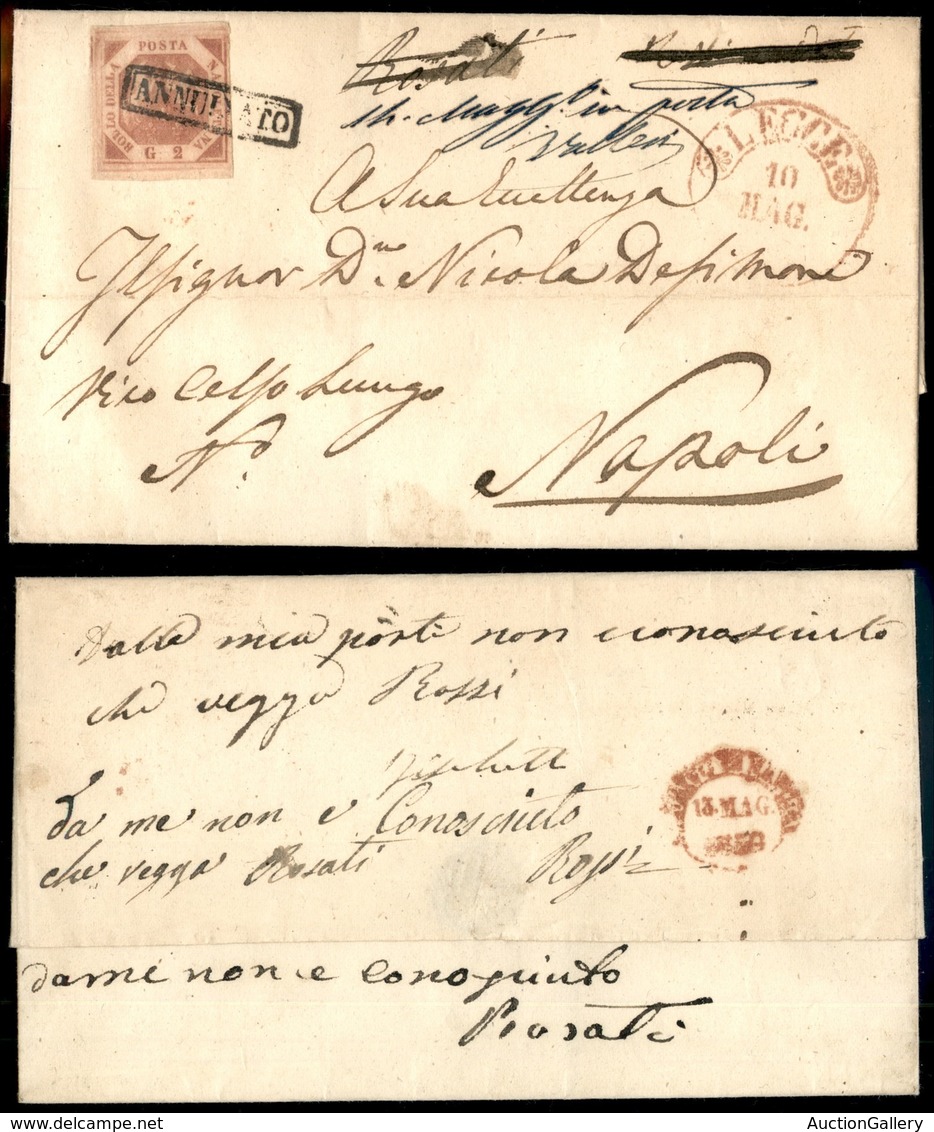 BOLLO DELLA POSTA NA
G 2
ANNULLATO
Rosati
in porta
LECCE
10
MAG.
A Sua Eccellenza
Il Signor Dn Nicola Desimone
Vico Celso Lungo
N.
Napoli
Dalla mia porti non conosciuto
che vegga Rossi
da me non e Conosciuto
che vegga Rosati Rossi
13. MAG.
da me non e conosciuto
Rosati
AuctionGallery